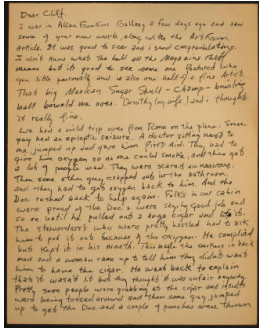 Dear Cliff.
I was in Allan Frumkins Gallery a few days ago and saw
some of your new work, along with the Artforum
article. It was good to see and I send congratulations.
I don't know what the hell all the Magazines
means but it's good to see some one featured who
you like personally and is also one hell of a fine Artist.
That big Mexican Sugar Skull - Champ - bowling
ball bowled me over. Dorothy (my wife) and I thought
it really fine.
We had a wild trip over from Rome on the plane. Some
guy had an epileptic seizure. A doctor sitting next to
me jumped up and gave him first Aid. They had to
give him oxygen so no one could smoke, and that got
a lot of people mad. They were scared or nervous.
Then some other guy crapped out in the bathroom,
and they had to get oxygen back to him. And the
Doc rushed back to help again. Folks in our cabin
were proud of the Doc &. were saying good job and
so on until he pulled out a huge cigar and lit it.
The stewardess's who were pretty hassled had to ask
him to put it out because of the oxygen. He complied
but kept it in his mouth. This made the in back
mad and a woman came up to tell him they didn't want
him to have the cigar. He went back to explain
that it wasn't lit but they thought it was unfair anyway.
Pretty soon people were grabbing at the cigar and insults
were being tossed around and then some guy jumped
up to get the Doc and a couple of punches were thrown